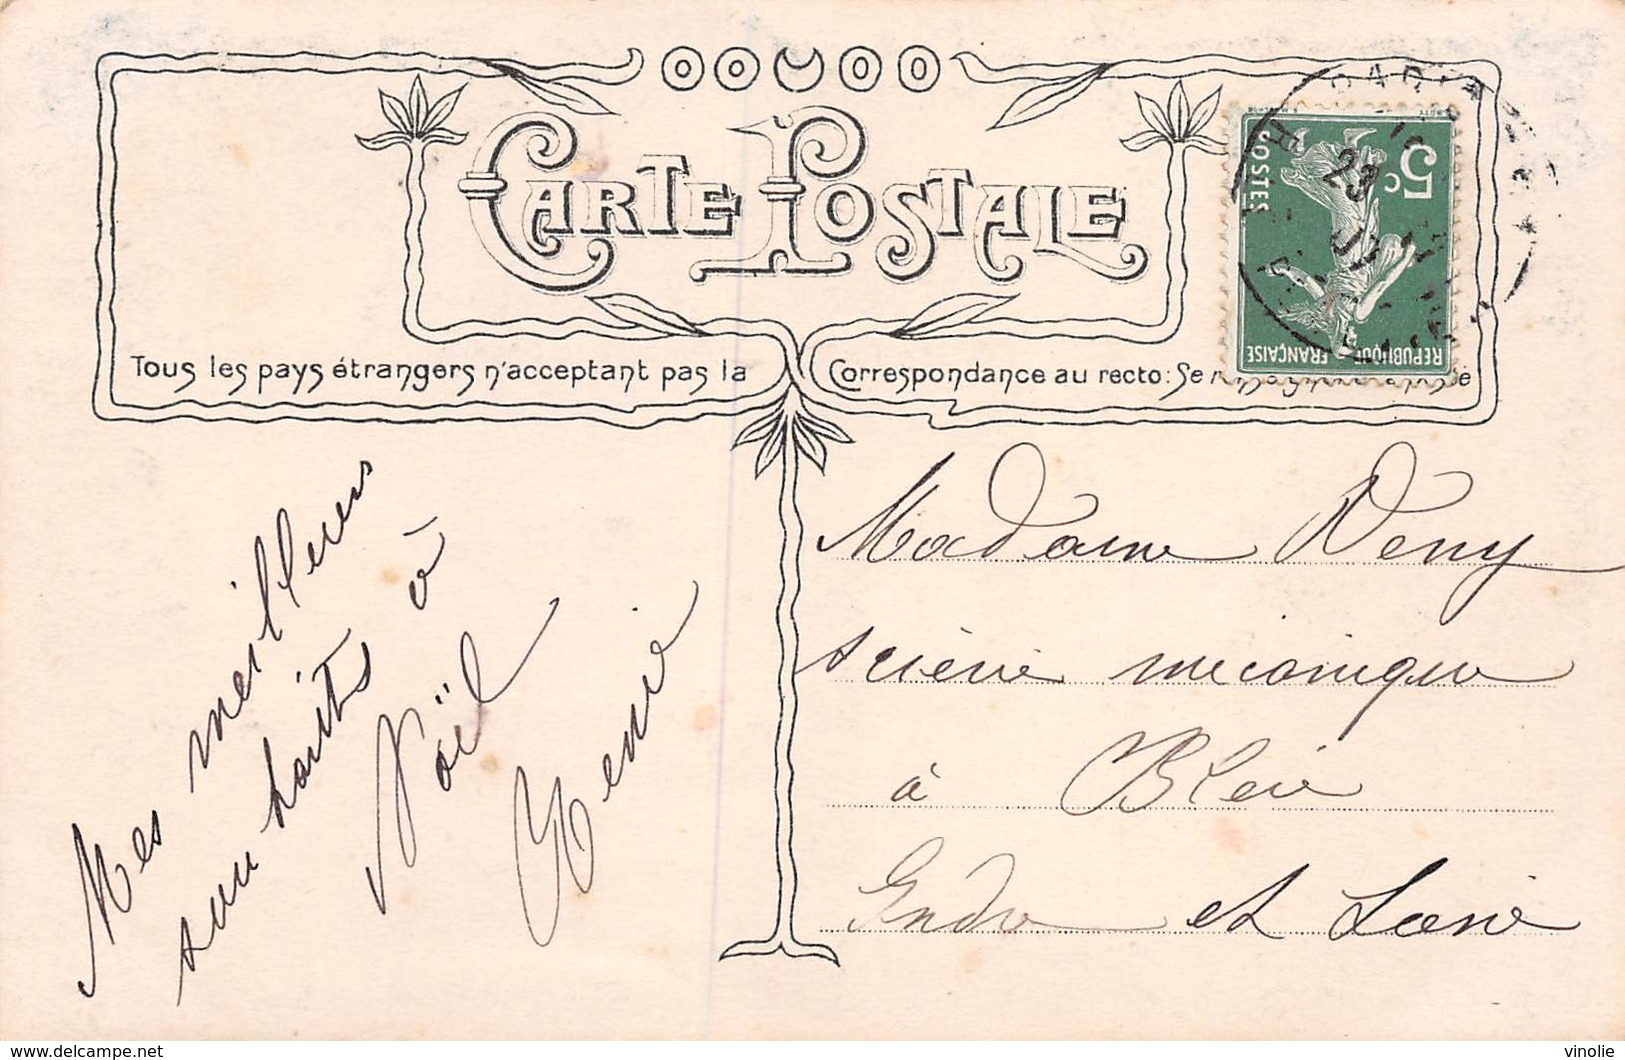 CARTE POSTALE
Tous les pays étrangers n'acceptant pas la Correspondance au recto: Se
5c
POSTES
REPUBLIQUE FRANÇAISE
PARIS
23
07
Mes meilleurs
souhaits à
Noël
Madame Deny
scierie mécanique
à Bléré
Indre et Loire
delcampe.net
vinolie